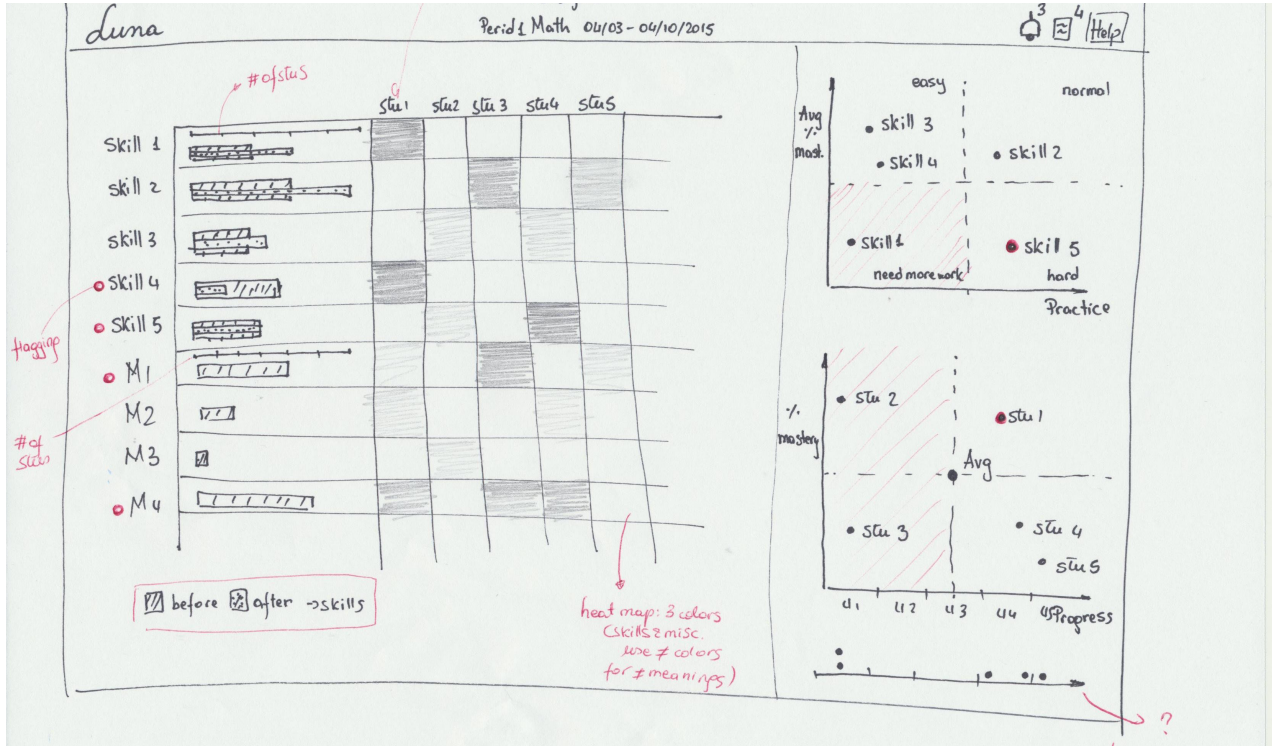 Luna
Perid 1 Math 04/03 - 04/10/2015
3
4
Help
# of stus
stu 1 stu2 stu 3 stu4 stu5
Skill 1
skill 2
skill 3
skill 4
skill 5
M1
M2
M3
M4
flagging
# of
stus
before after → skills
heat map: 3 colors
(skills & misc.
use ≠ colors
for ≠ meanings)
Avg
%
mast.
easy
normal
skill 3
skill 4
skill 2
skill 1
skill 5
need more work
hard
Practice
%
mastery
stu 2
stu 1
Avg
stu 3
stu 4
stu 5
u1 u2 u3 u4 u5 Progress
?